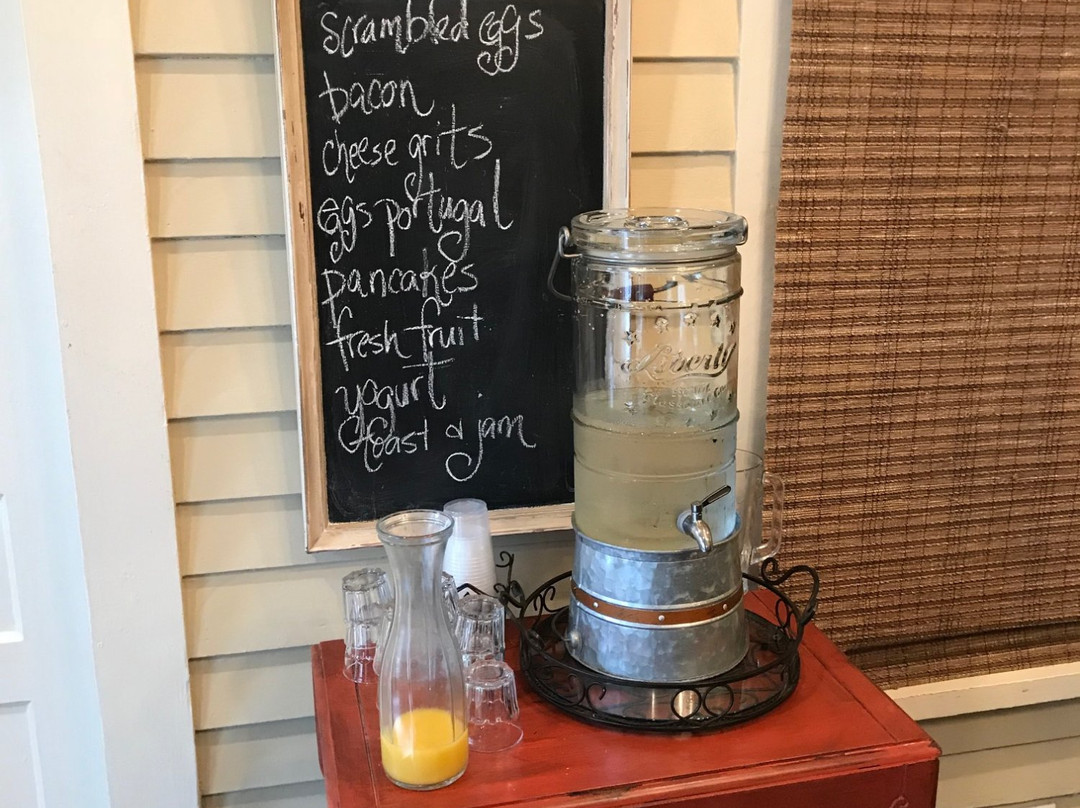 scrambled eggs
bacon
cheese grits
eggs portugal
pancakes
fresh fruit
yogurt
toast & jam
Liberty